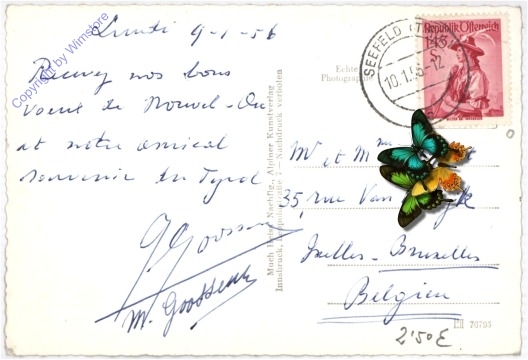 Lundi 9-1-56
Recevez nos bons
voeux de Nouvel-An
et notre amical
souvenir du Tyrol
G. Goossens
M. Goossens
Copyright by Wimstore
Echte
Photographie
Much Heiss Nachflg., Alpiner Kunstverlag
Innsbruck, Nachdruck verboten
SEEFELD (T
10.1.56 12
Republik Österreich
1.45 S
Mr et Mme
35, rue Van
Ixelles - Bruxelles
Belgien
70793
2'50 E.